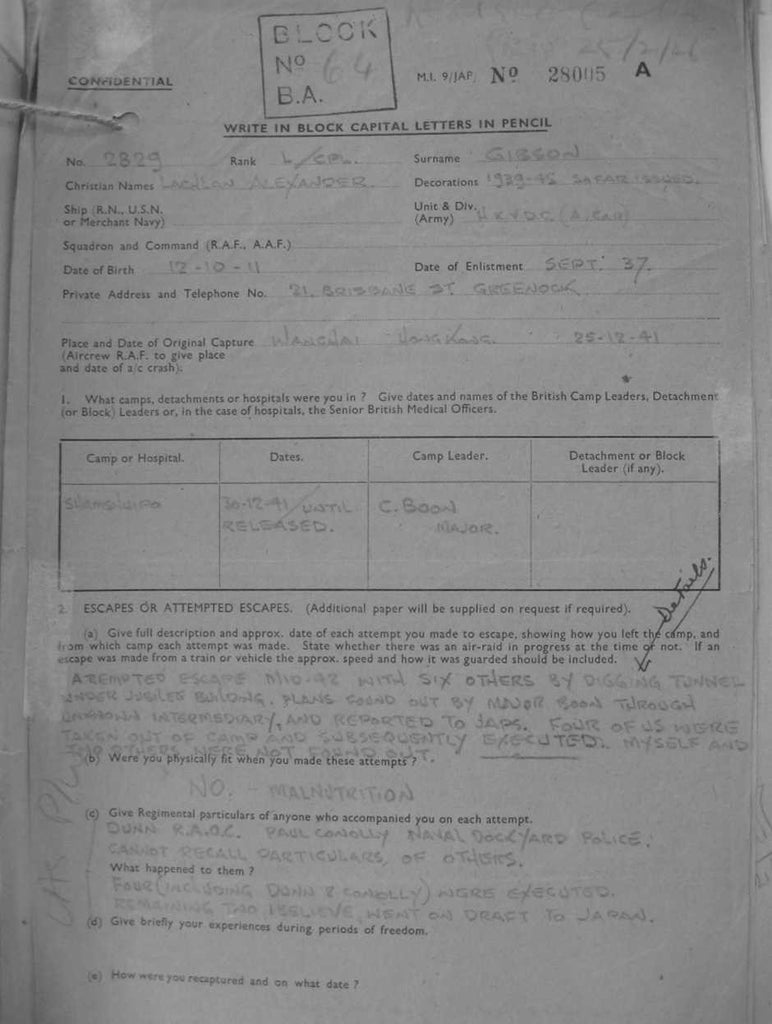 BLOCK
Nº 64
B.A.
25/2/46
CONFIDENTIAL
M.I. 9/JAP. Nº 28005 A
WRITE IN BLOCK CAPITAL LETTERS IN PENCIL
No. 2829 Rank L/CPL. Surname GIBSON
Christian Names LACHLAN ALEXANDER. Decorations 1939-45 SAFAR ISSUED.
Ship (R.N., U.S.N. or Merchant Navy)
Unit & Div. (Army) H K V D C (A. Coy)
Squadron and Command (R.A.F., A.A.F.)
Date of Birth 12-10-11 Date of Enlistment SEPT. 37.
Private Address and Telephone No. 21, BRISBANE ST. GREENOCK
Place and Date of Original Capture WANCHAI HONG KONG. 25-12-41
(Aircrew R.A.F. to give place
and date of a/c crash).
1. What camps, detachments or hospitals were you in ? Give dates and names of the British Camp Leaders, Detachment
(or Block) Leaders or, in the case of hospitals, the Senior British Medical Officers.
Camp or Hospital. Dates. Camp Leader. Detachment or Block
Leader (if any).
SHAMSHUIPO 30-12-41/UNTIL C. BOON
RELEASED. MAJOR.
Details.
2. ESCAPES OR ATTEMPTED ESCAPES. (Additional paper will be supplied on request if required).
(a) Give full description and approx. date of each attempt you made to escape, showing how you left the camp, and
from which camp each attempt was made. State whether there was an air-raid in progress at the time or not. If an
escape was made from a train or vehicle the approx. speed and how it was guarded should be included.
ATEMPTED ESCAPE MID-42 WITH SIX OTHERS BY DIGGING TUNNEL
UNDER JUBILEE BUILDING. PLANS FOUND OUT BY MAJOR BOON THROUGH
UNKNOWN INTERMEDIARY, AND REPORTED TO JAPS. FOUR OF US WERE
TAKEN OUT OF CAMP AND SUBSEQUENTLY EXECUTED. MYSELF AND
TWO OTHERS WERE NOT FOUND OUT.
(b) Were you physically fit when you made these attempts ?
NO. - MALNUTRITION
(c) Give Regimental particulars of anyone who accompanied you on each attempt.
DUNN R.A.O.C. PAUL CONOLLY NAVAL DOCKYARD POLICE.
CANNOT RECALL PARTICULARS OF OTHERS.
What happened to them ?
FOUR (INCLUDING DUNN & CONOLLY) WERE EXECUTED.
REMAINING TWO I BELIEVE, WENT ON DRAFT TO JAPAN.
(d) Give briefly your experiences during periods of freedom.
(e) How were you recaptured and on what date ?